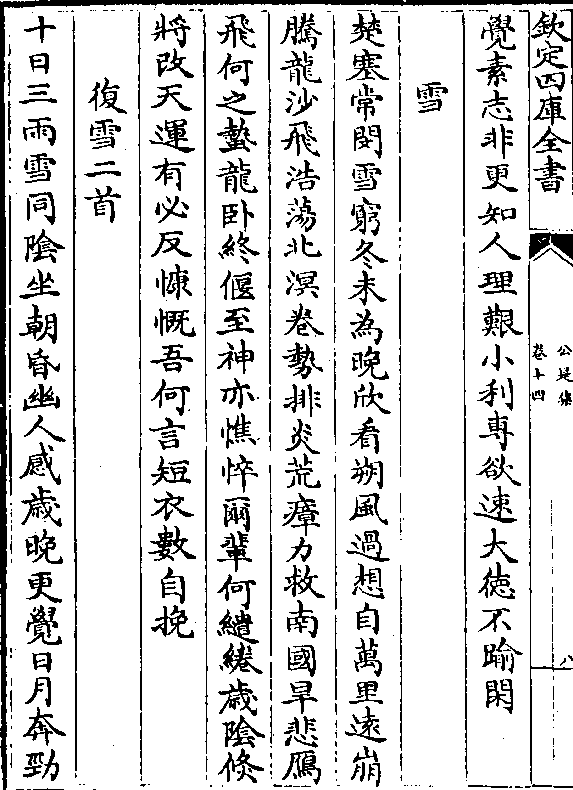 欽定四庫全書
公是集
卷十四
八
覺素志非更知人理艱小利専欲速大徳不踰閑
雪
楚塞常閔雪窮冬未為晚欣看朔風過想自萬里逺崩
騰龍沙飛浩蕩北溟卷勢排炎荒瘴力救南國旱悲鴈
飛何之蟄龍卧終偃至神亦憔悴爾輩何繾綣歳陰倐
將改天運有必反慷慨吾何言短衣數自挽
復雪二首
十日三雨雪同陰坐朝昏幽人感歳晚更覺日月奔勁